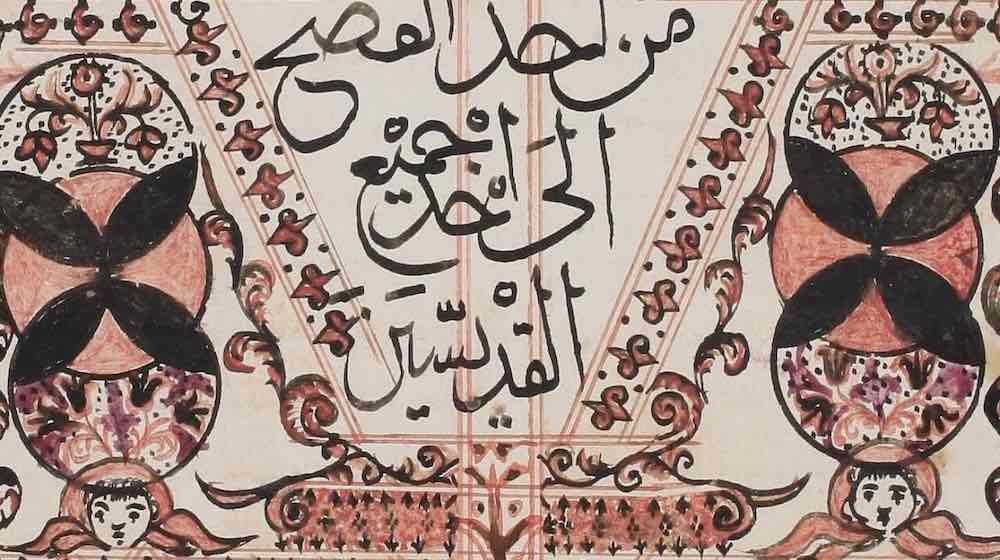 من احد الفصح
الَى احَد جَميْع
القدْيسّيَن